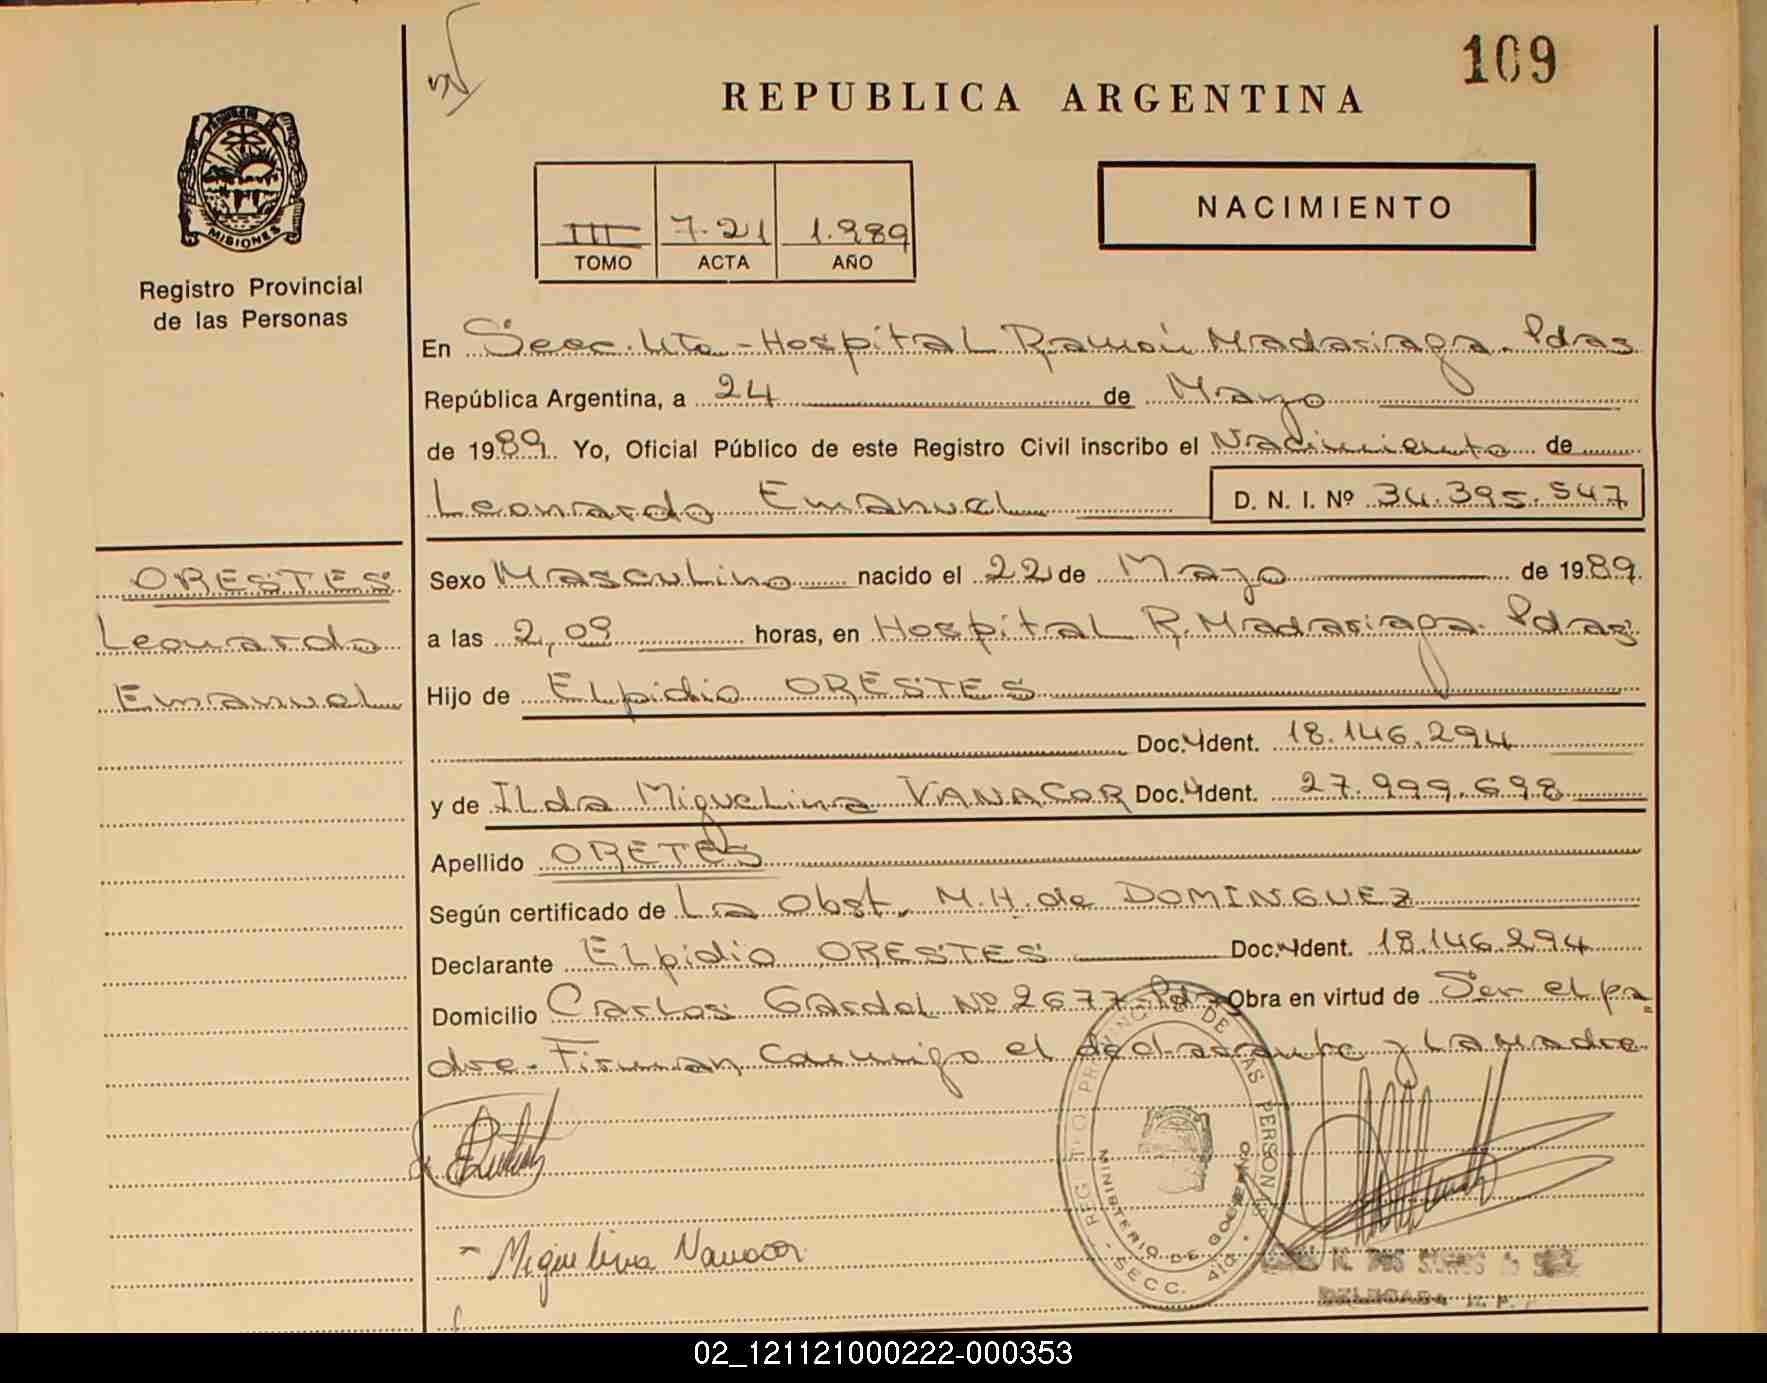 109
REPUBLICA ARGENTINA
PROVINCIA DE
MISIONES
Registro Provincial
de las Personas
NACIMIENTO
III 721 1.989
TOMO ACTA AÑO
En Secc. 4ta - Hospital Ramón Madariaga. Pdas
República Argentina, a 24 de Mayo
de 1989. Yo, Oficial Público de este Registro Civil inscribo el Nacimiento de
Leonardo Emanuel D. N. I. Nº 34.395.547
ORESTES
Leonardo
Emanuel
Sexo Masculino nacido el 22 de Mayo de 1989.
a las 2,09 horas, en Hospital R. Madariaga. Pdas
Hijo de Elpidio ORESTES
Doc. Ident. 18.146.294
y de Ilda Miguelina VANACOR Doc. Ident. 27.999.698
Apellido ORETES
Según certificado de La Obst. M.H. de DOMINGUEZ
Declarante Elpidio ORESTES Doc. Ident. 18.146.294
Domicilio Carlos Gardel Nº 2677 - Pdas Obra en virtud de Ser el pa
dre - Firman conmigo el declarante y La Madre
REG. PROVINCIAL DE LAS PERSONAS
MINISTERIO DE GOBIERNO
SECC. 4ta
Miguelina Vanacor
DELEGADA R. P.
02_121121000222-000353